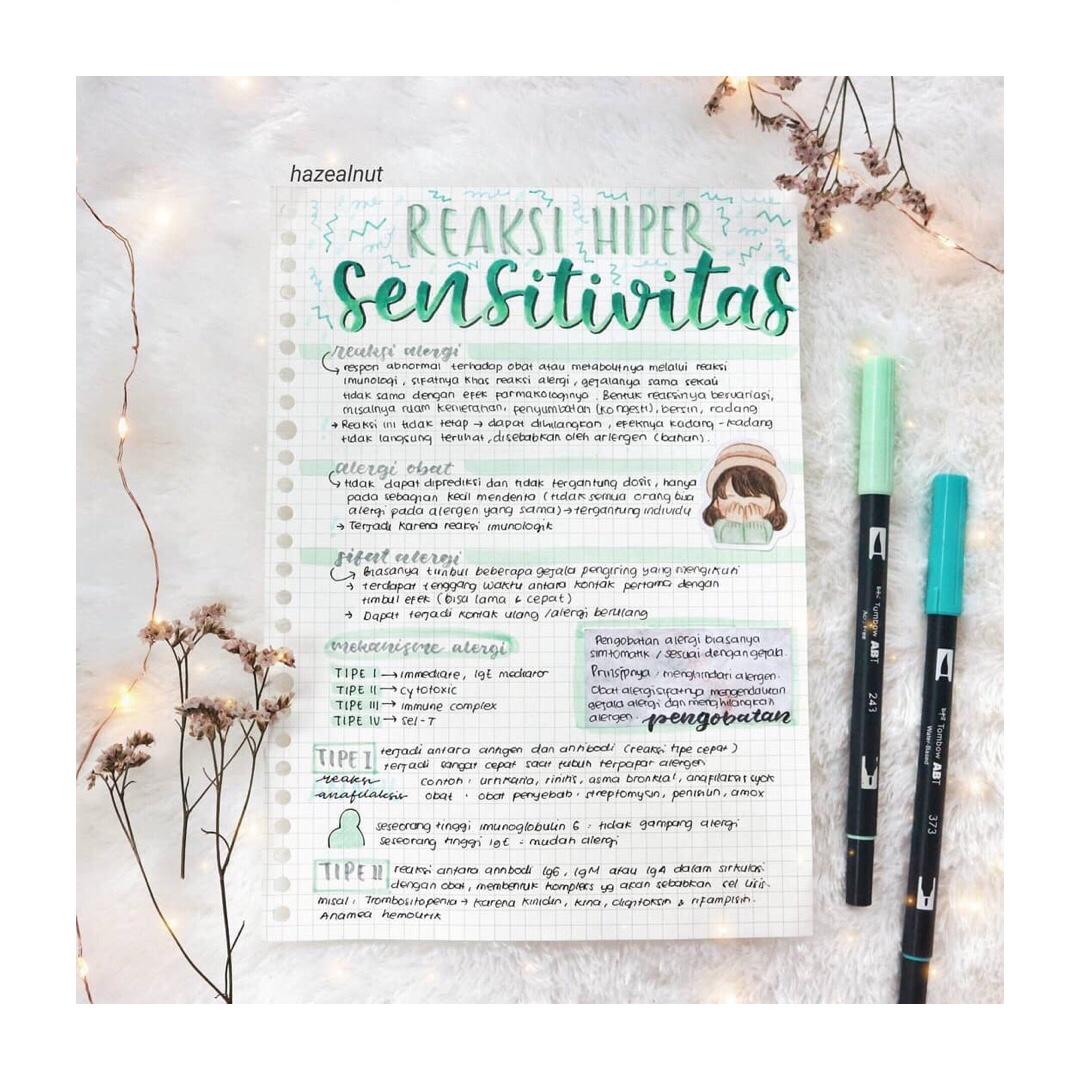 hazealnut
REAKSI HIPER
Sensitivitas
reaksi alergi
respon abnormal terhadap obat atau metabolitnya melalui reaksi
imunologi, sifatnya khas reaksi alergi, gejalanya sama sekali
tidak sama dengan efek farmakologinya. Bentuk reaksinya bervariasi,
misalnya ruam kemerahan, penyumbatan (kongesti), bersin, radang
→ Reaksi ini tidak tetap → dapat dihilangkan, efeknya kadang-kadang
tidak langsung terlihat, disebabkan oleh arlergen (bahan).
alergi obat
tidak dapat diprediksi dan tidak tergantung dosis, hanya
pada sebagian kecil menderita (tidak semua orang bisa
alergi pada alergen yang sama) → tergantung individu
→ Terjadi karena reaksi imunologik
sifat alergi
Biasanya timbul beberapa gejala pengiring yang mengikuti
→ terdapat tenggang waktu antara kontak pertama dengan
timbul efek (bisa lama & cepat)
→ Dapat terjadi kontak ulang /alergi berulang
mekanisme alergi
TIPE I → immediate, IgE mediator
TIPE II → cytotoxic
TIPE III → immune complex
TIPE IV → sel-T
Pengobatan alergi biasanya
simtomatik / sesuai dengan gejala.
Prinsipnya, menghindari alergen.
Obat alergi sifatnya mengendalikan
gejala alergi dan menghilangkan
alergen. pengobatan
TIPE I terjadi antara antigen dan antibodi (reaksi tipe cepat)
terjadi sangat cepat saat tubuh terpapar alergen
reaksi contoh: urtikaria, rinitis, asma bronkial, anafilaksi syok
anafilaksis obat · obat penyebab · streptomysin, penisilin, amox
seseorang tinggi imunoglobulin G : tidak gampang alergi
seseorang tinggi IgE = mudah alergi
TIPE II reaksi antara antibodi IgG, IgM atau IgA dalam sirkulasi
dengan obat, membentuk kompleks yg akan sebabkan sel lisis.
misal: Trombositopenia → karena kinidin, kina, digitoksin & rifampisin.
Anamea hemolitik
bpc Tombow ABT
Acid Free
243
bpc Tombow ABT
Water-Based
373